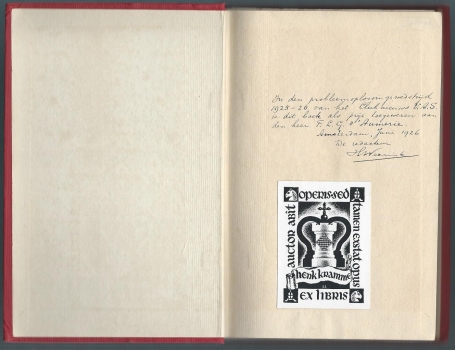 In den probleemoplossingswedstrijd
1925-26 van het Clubnieuws V.A.S.
is dit boek als prijs toegewezen aan
den heer F. L. G. d'Aumerie
Amsterdam, Juni 1926
De redacteur
auctor abit
operis·sed
tamen exstat opus
henk kramme
EX LIBRIS